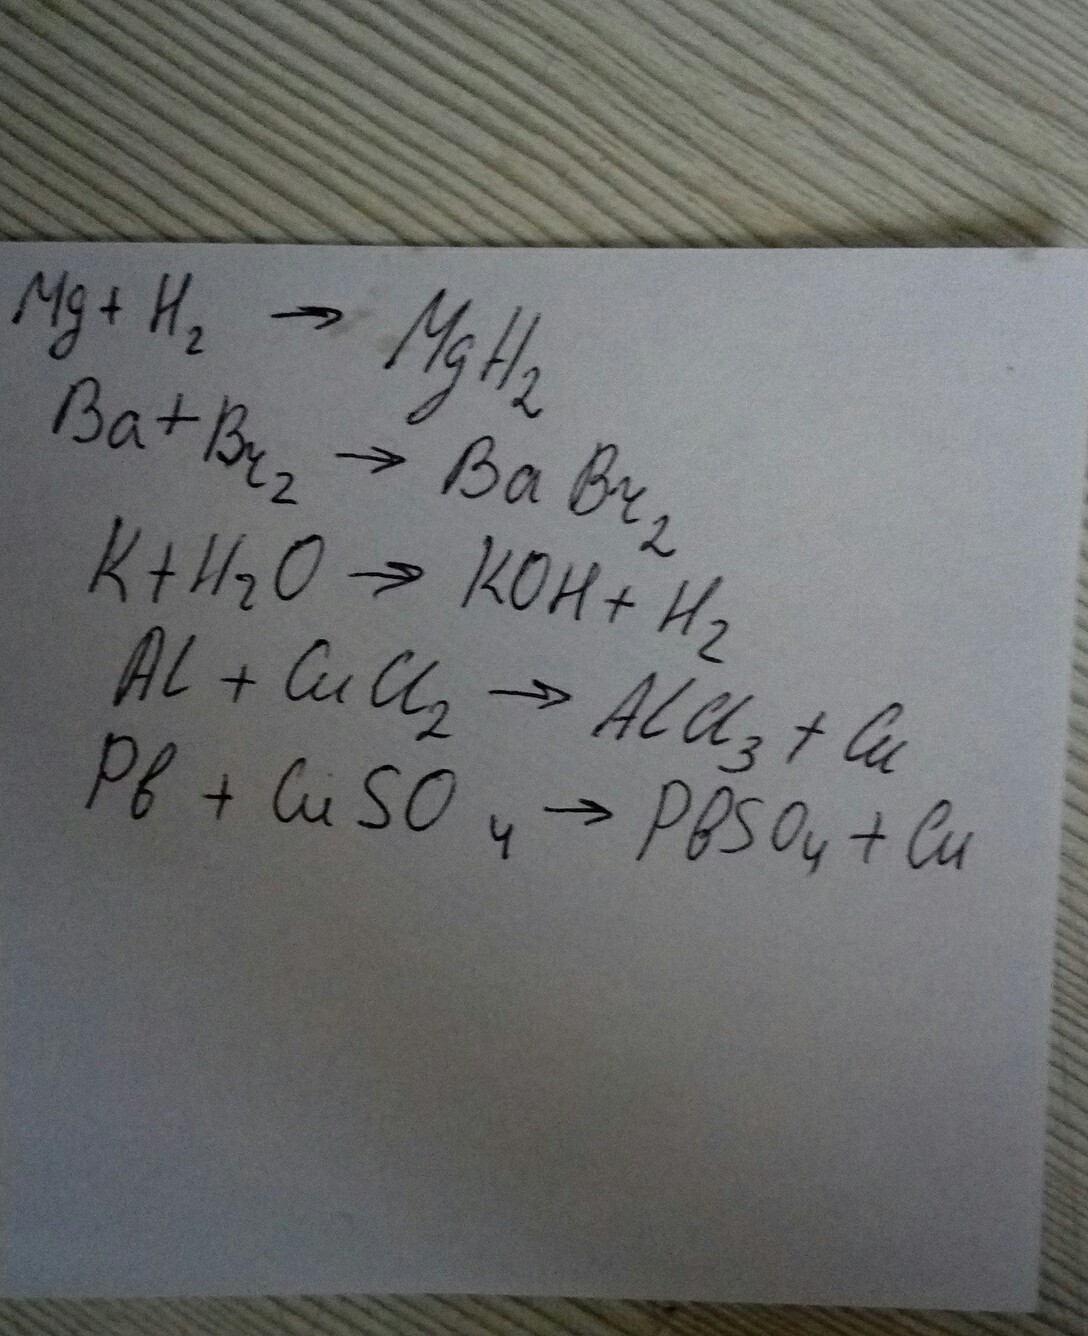 Mg + H₂ → MgH₂
Ba + Br₂ → BaBr₂
K + H₂O → KOH + H₂
Al + CuCl₂ → AlCl₃ + Cu
Pb + CuSO₄ → PbSO₄ + Cu